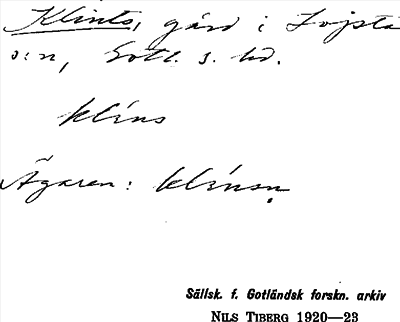 Klints, gård i Lojsta
s:n, Gotl. s. hd.
klins
Ägaren: klinsn
Sällsk. f. Gotländsk forskn. arkiv
NILS TIBERG 1920—23